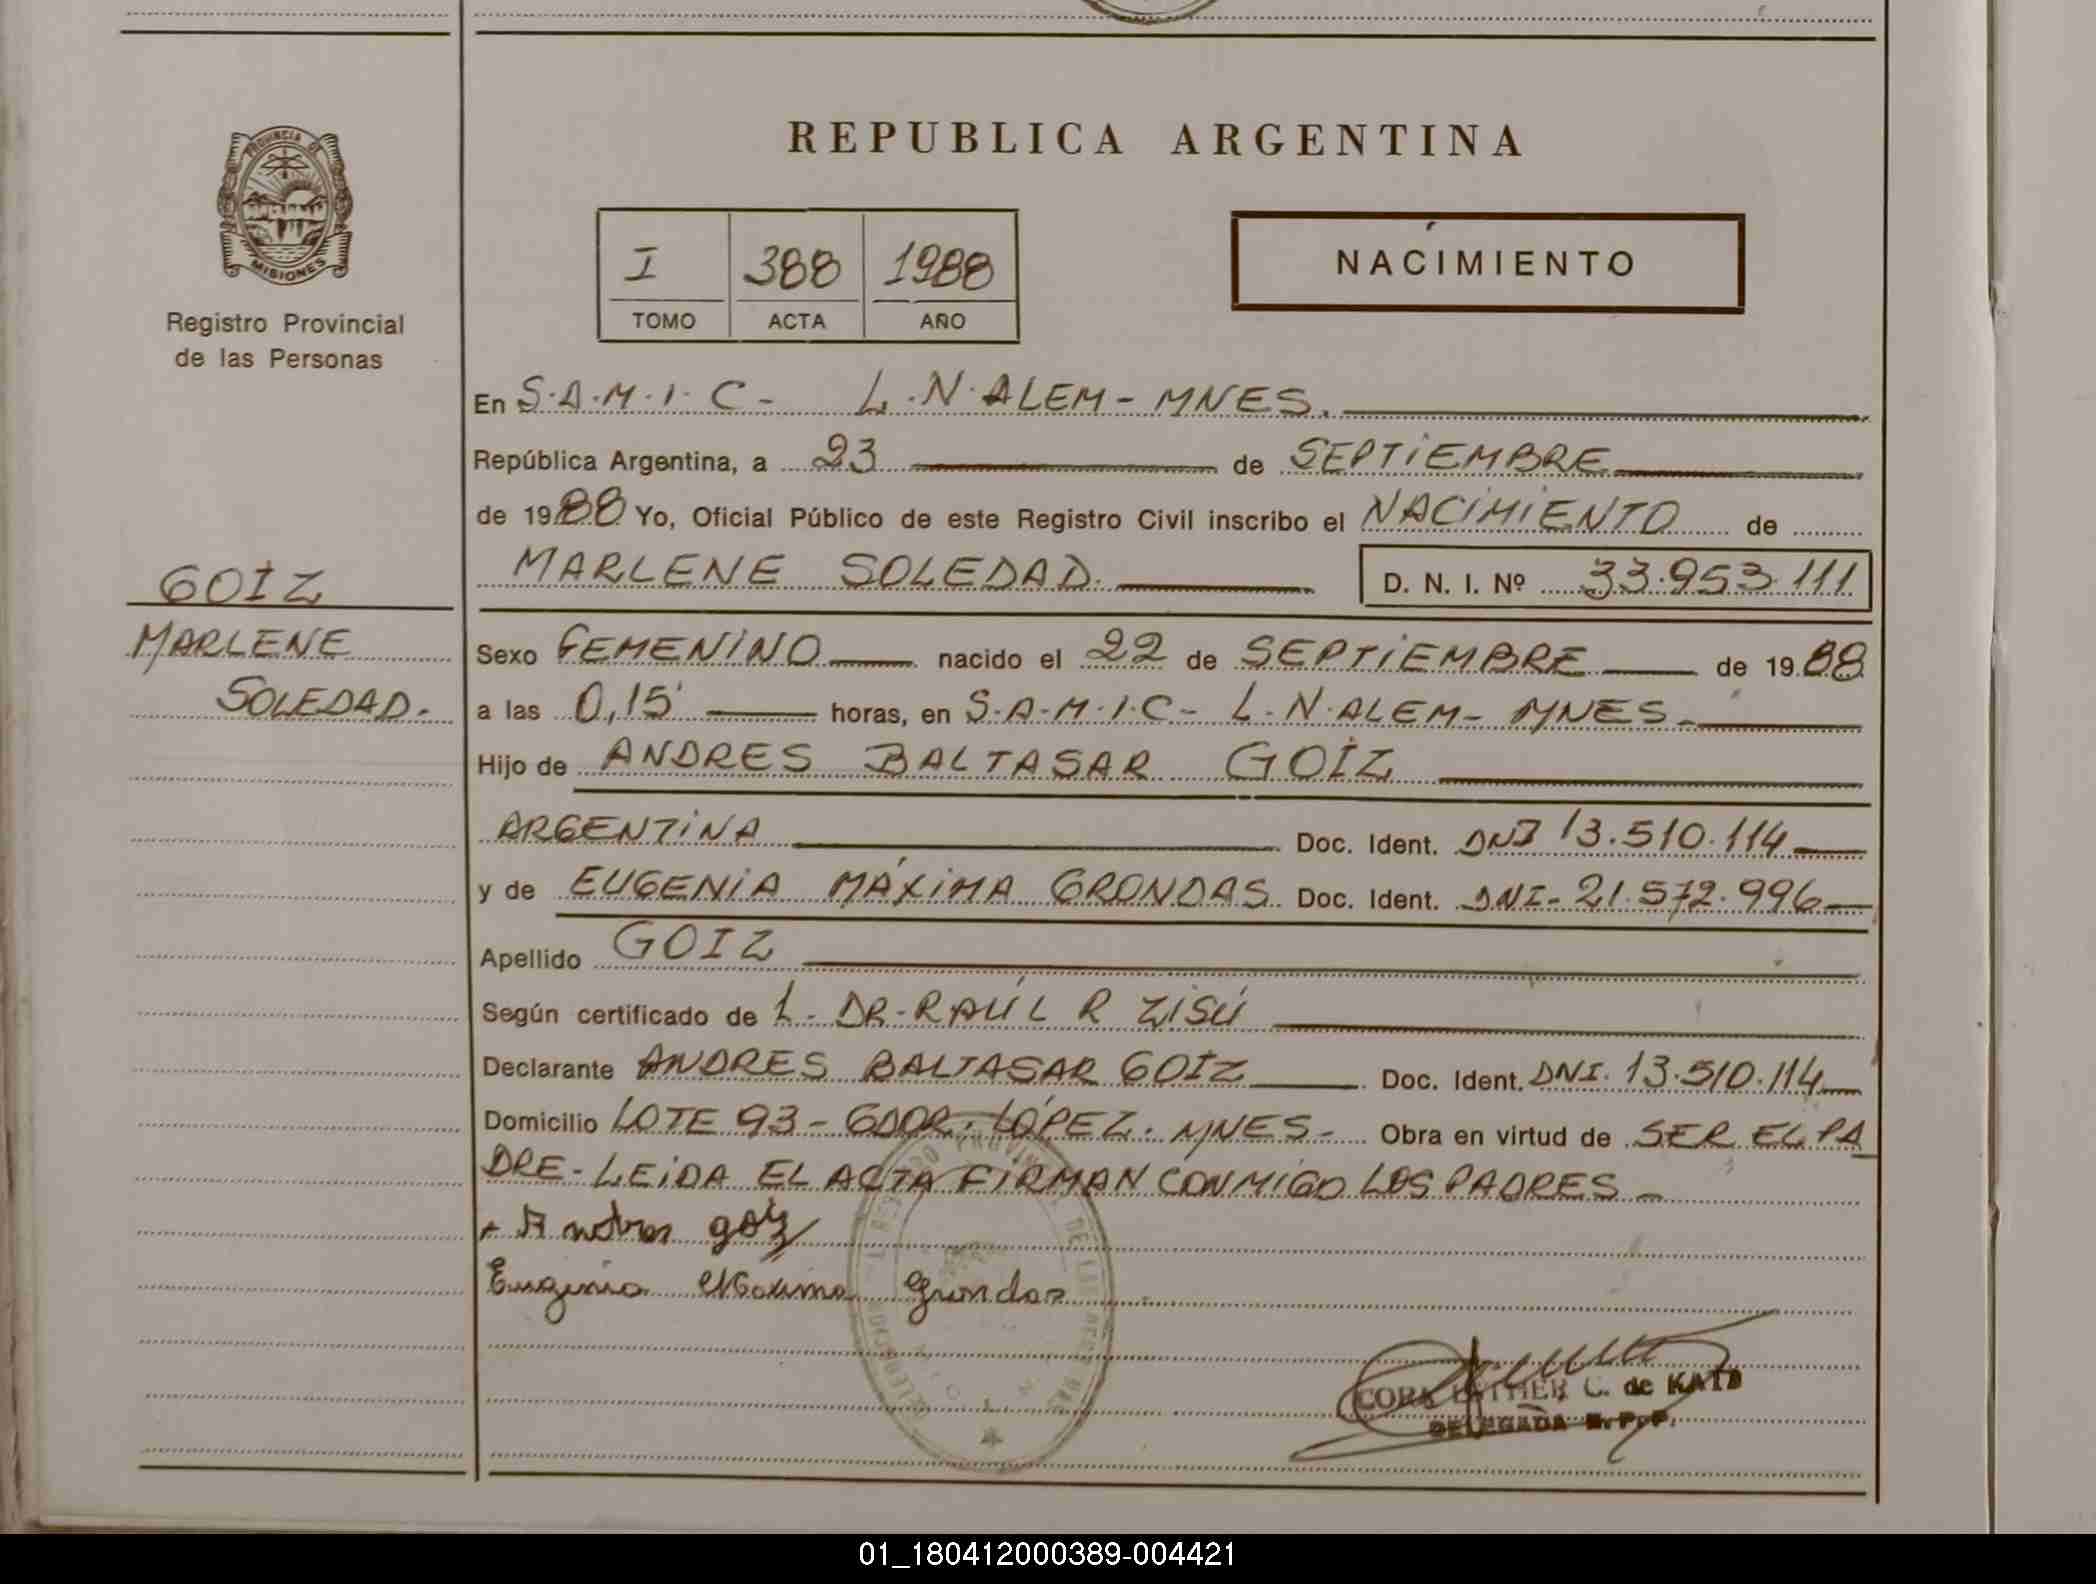 REPUBLICA ARGENTINA
PROVINCIA DE
MISIONES
Registro Provincial
de las Personas
I 388 1988
TOMO ACTA AÑO
NACIMIENTO
En S.A.M.I.C- L.N.ALEM-MNES.
República Argentina, a 23 de SEPTIEMBRE
de 1988 Yo, Oficial Público de este Registro Civil inscribo el NACIMIENTO de
MARLENE SOLEDAD. D. N. I. Nº 33.953.111
GOIZ
MARLENE
SOLEDAD.-
Sexo FEMENINO nacido el 22 de SEPTIEMBRE de 1988
a las 0,15' horas, en S-A-M-I-C- L-N-ALEM- MNES-
Hijo de ANDRES BALTASAR GOIZ
ARGENTINA Doc. Ident. DNI 13.510.114
y de EUGENIA MÁXIMA GRONDAS Doc. Ident. DNI-21.572.996
Apellido GOIZ
Según certificado de L. DR-RAÚL R ZISÚ
Declarante ANDRES BALTASAR GOIZ Doc. Ident. DNI. 13.510.114
Domicilio LOTE 93-GDOR. LÓPEZ. MNES- Obra en virtud de SER EL PA
DRE- LEIDA EL ACTA FIRMAN CONMIGO LOS PADRES-
Andres goiz
Eugenia Maxima Grondas
C. de KATZ
DELEGADA R. P. P.
01_180412000389-004421